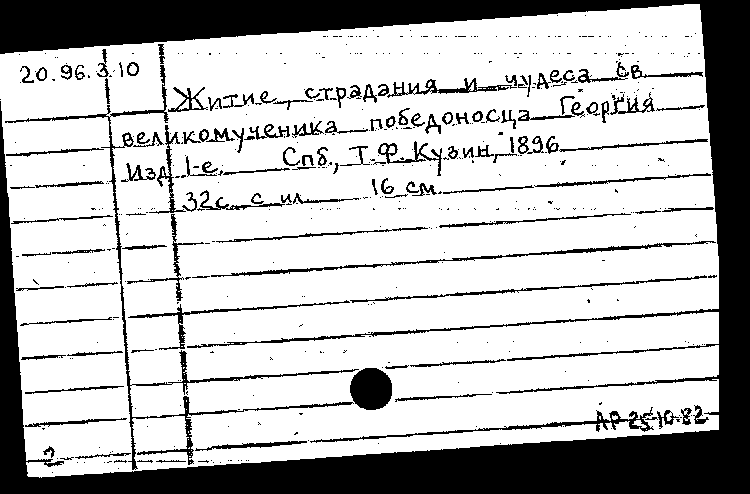 20.96.3.10
Житие, страдания и чудеса св
великомученика победоносца Георгия
Изд 1-е. Спб., Т.Ф. Кузин, 1896
32с. с ил. 16 см
АР 25.10.82
2